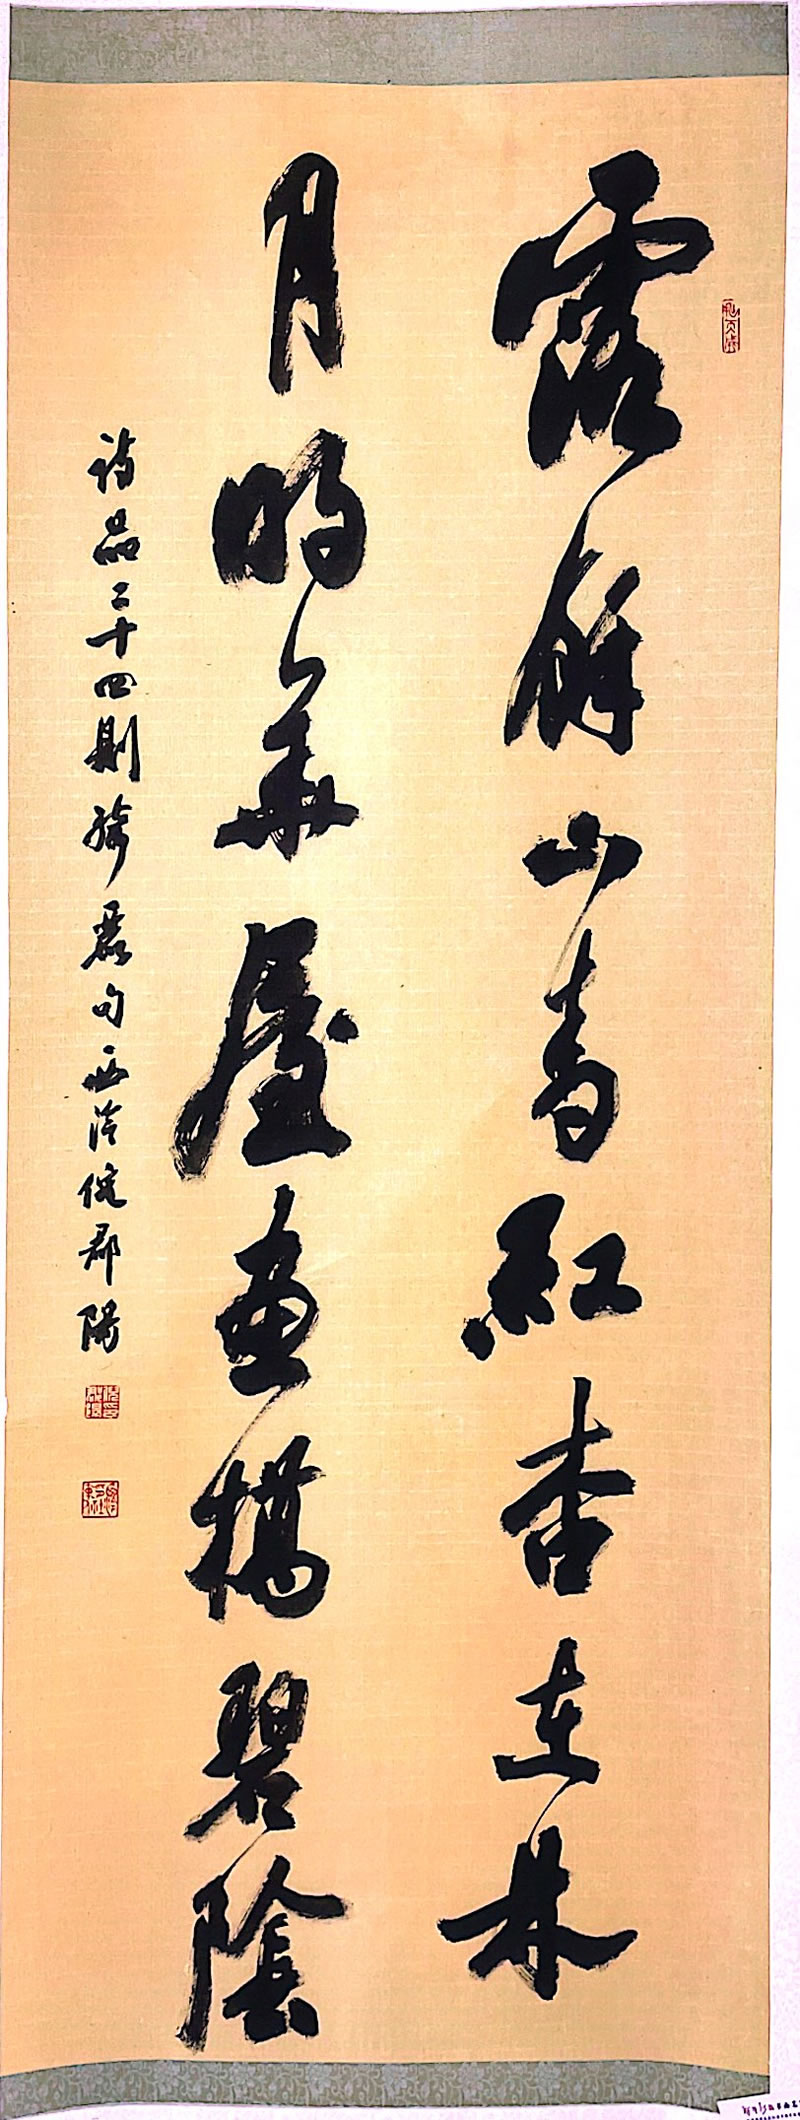 露餘山青紅杏在林
月明華屋畫橋碧陰
詩品二十四則綺麗句西泠倪郡陽